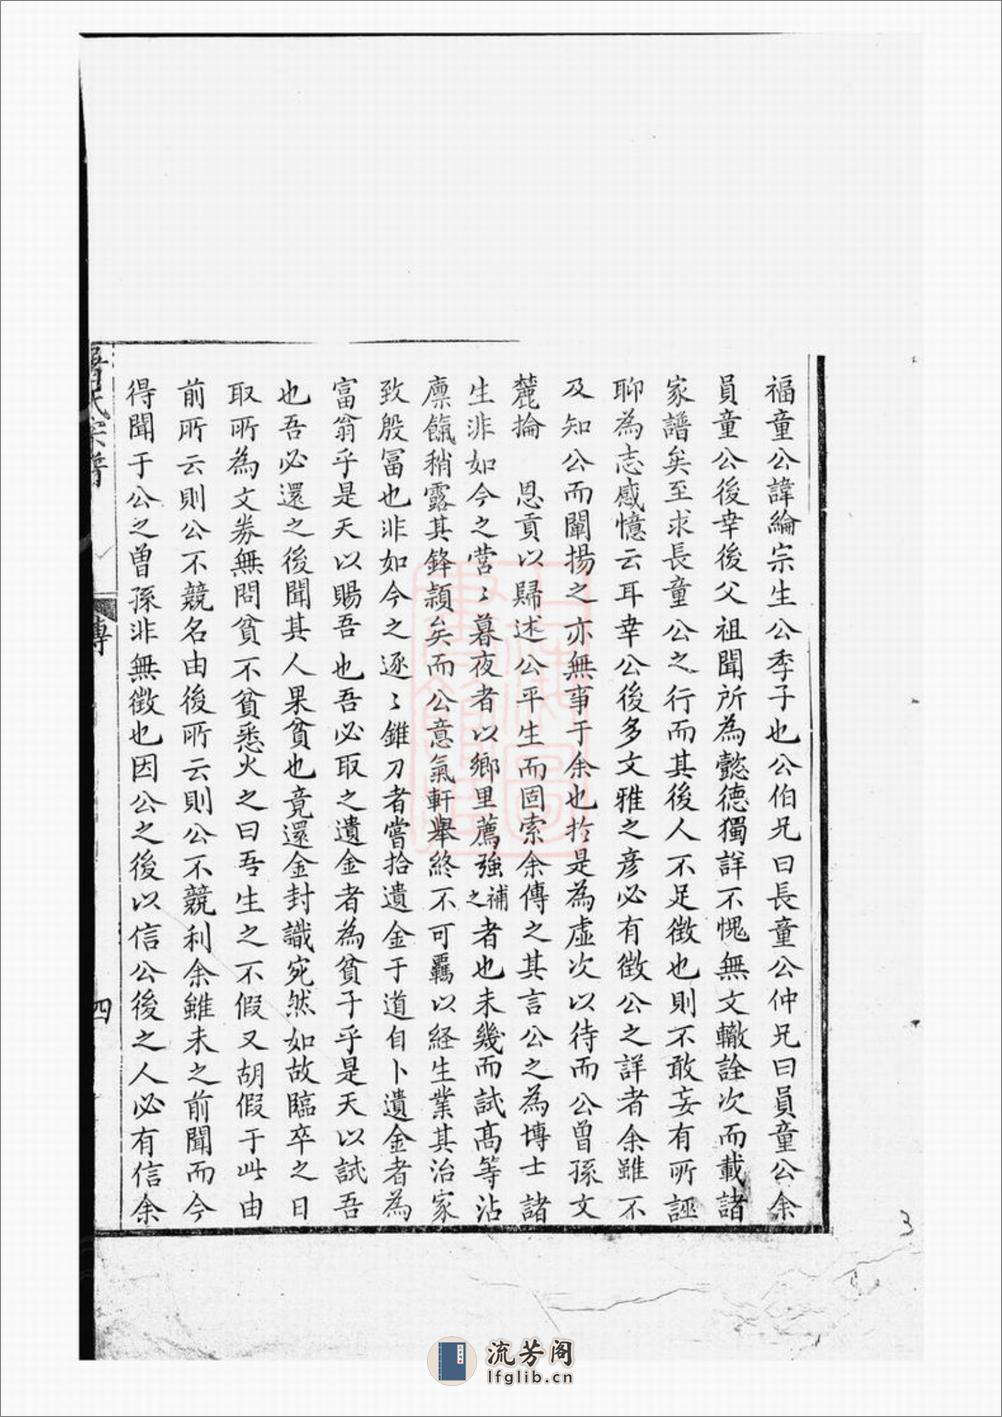 福童公諱綸宗生公季子也公伯兄曰長童公仲兄曰員童公余
員童公後幸後父祖聞所為懿德獨詳不愧無文轍詮次而載諸
家譜矣至求長童公之行而其後人不足徵也則不敢妄有所誣
聊為志感憶云耳幸公後多文雅之彦必有徵公之詳者余雖不
及知公而闡揚之亦無事于余也扵是為虛次以待而公曽孫文
麓掄　恩貢以歸述公平生而固索余傳之其言公之為博士諸
生非如今之營〻暮夜者以鄉里薦強補之者也未幾而試高等沾
廩餼稍露其鋒頴矣而公意氣軒舉終不可羈以経生業其治家
致殷冨也非如今之逐〻錐刀者嘗拾遺金于道自卜遺金者為
富翁乎是天以賜吾也吾必取之遺金者為貧子乎是天以試吾
也吾必還之後聞其人果貧也竟還金封識宛然如故臨卒之日
取所為文券無問貧不貧悉火之曰吾生之不假又胡假于此由
前所云則公不競名由後所云則公不競利余雖未之前聞而今
得聞于公之曽孫非無徵也因公之後以信公後之人必有信余
氏宗譜
傳
四
3
流芳阁
lfglib.cn